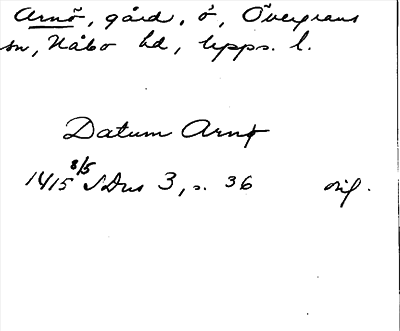 Arnö, gård, ö, Övergrans
sn, Håbo hd, Upps. l.
Datum Arnø
1415 8/5 SDns 3, s. 36 orig.